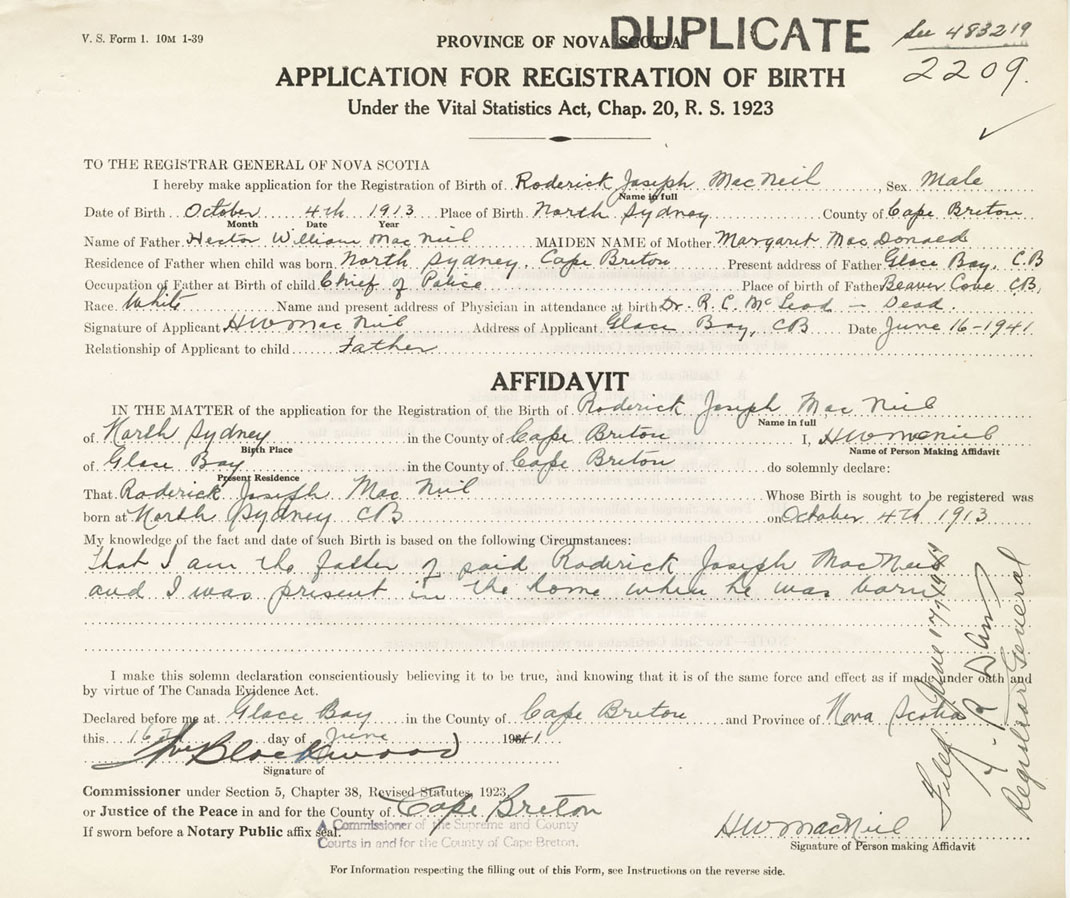 V. S. Form 1. 10M 1-39
DUPLICATE
See 483219
PROVINCE OF NOVA SCOTIA
2209.
APPLICATION FOR REGISTRATION OF BIRTH
Under the Vital Statistics Act, Chap. 20, R. S. 1923
TO THE REGISTRAR GENERAL OF NOVA SCOTIA
I hereby make application for the Registration of Birth of Roderick Joseph MacNeil, Sex Male
Name in full
Date of Birth October 4th 1913 Place of Birth North Sydney County of Cape Breton
Month Date Year
Name of Father Hector William MacNeil MAIDEN NAME of Mother Margaret MacDonald
Residence of Father when child was born North Sydney, Cape Breton Present address of Father Glace Bay, C.B
Occupation of Father at Birth of child Chief of Police Place of birth of Father Beaver Cove CB,
Race White Name and present address of Physician in attendance at birth Dr. R. C. McLeod - Dead
Signature of Applicant HW MacNeil Address of Applicant Glace Bay, CB Date June 16-1941
Relationship of Applicant to child Father
AFFIDAVIT
IN THE MATTER of the application for the Registration of the Birth of Roderick Joseph MacNeil
Name in full
of North Sydney in the County of Cape Breton I, HW McNeil
Birth Place Name of Person Making Affidavit
of Glace Bay in the County of Cape Breton do solemnly declare:
Present Residence
That Roderick Joseph MacNeil Whose Birth is sought to be registered was
born at North Sydney CB on October 4th 1913
My knowledge of the fact and date of such Birth is based on the following Circumstances:
That I am the father of said Roderick Joseph MacNeil
and I was present in the home when he was born
I make this solemn declaration conscientiously believing it to be true, and knowing that it is of the same force and effect as if made under oath and
by virtue of The Canada Evidence Act.
Declared before me at Glace Bay in the County of Cape Breton and Province of Nova Scotia
this 16th day of June 1941
Blackwood
Signature of
Commissioner under Section 5, Chapter 38, Revised Statutes, 1923
or Justice of the Peace in and for the County of Cape Breton
If sworn before a Notary Public affix seal.
A Commissioner of the Supreme and County
Courts in and for the County of Cape Breton.
HW MacNeil
Signature of Person making Affidavit
For Information respecting the filling out of this Form, see Instructions on the reverse side.
Filed June 17, 1941
Registrar General